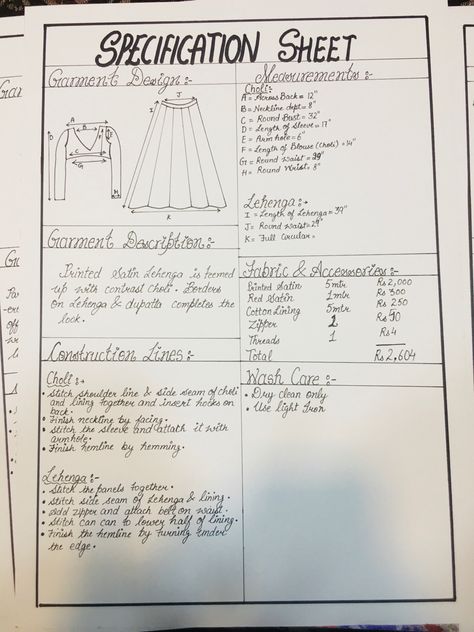 SPECIFICATION SHEET
Garment Design :-
J
A
B
I
D
E
F
C
G
H
K
Measurements :-
Choli :-
A = Across Back = 12"
B = Neckline dept = 8"
C = Round Bust = 32"
D = Length of Sleeve = 17"
E = Arm hole = 6"
F = Length of Blouse (Choli) = 14"
G = Round Waist = 29"
H = Round Wrist = 8"
Lehenga :→
I = Length of Lehenga = 39"
J = Round waist = 29"
K = Full Circular.
Garment Description :-
Printed Satin Lehenga is teemed
up with contrast choli. Borders
on Lehenga & dupatta completes the
look.
Fabric & Accessories :-
Printed Satin 5mtr Rs 2,000
Red Satin 1mtr Rs 300
Cotton Lining 5mtr Rs 250
Zipper 1 Rs 50
Threads 1 Rs 4
Total Rs 2,604
Construction Lines :-
Choli :→
• Stitch shoulder line & side seam of choli
and lining together and insert hooks on
back.
• Finish neckline by facing.
• Stitch the sleeve and attath it with
armhole.
• Finish hemline by hemming.
Lehenga :-
• Stitch the panels together.
• Stitch side seam of Lehenga & lining.
• Add zipper and attach belt on waist.
• Stitch can can to lower half of lining.
• Finish the hemline by turning under
the edge.
Wash Care :-
• Dry clean only
• Use light Iron